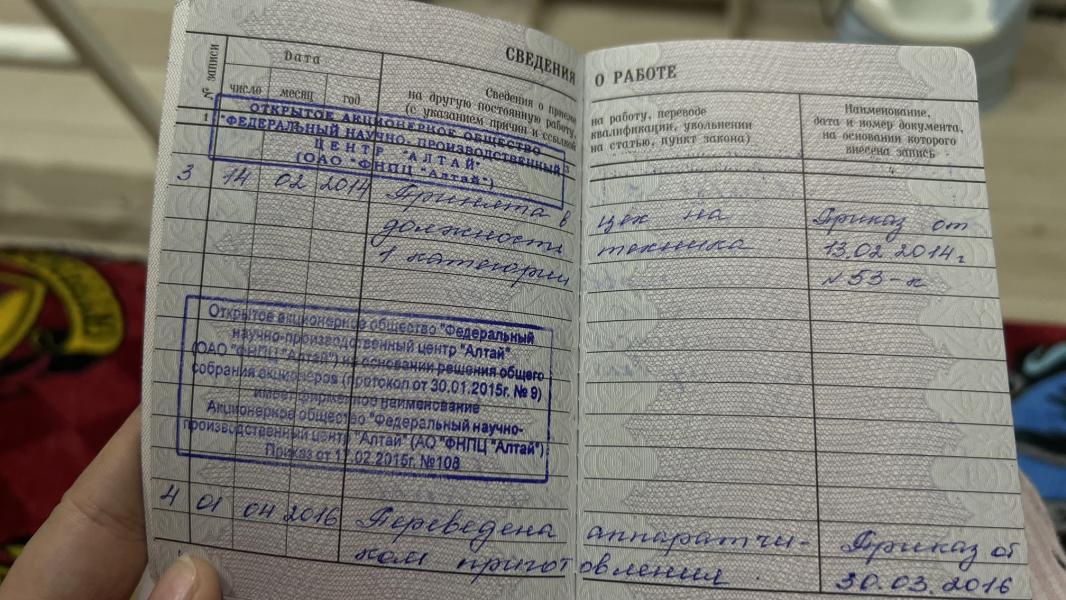 СВЕДЕНИЯ О РАБОТЕ
№ записи
Дата
число месяц год
Сведения о приеме
на другую постоянную работу,
(с указанием причин и ссылкой
на работу, переводе
квалификации, увольнении
на статью, пункт закона)
Наименование,
дата и номер документа,
на основании которого
внесена запись
1
4
ОТКРЫТОЕ АКЦИОНЕРНОЕ ОБЩЕСТВО
"ФЕДЕРАЛЬНЫЙ НАУЧНО-ПРОИЗВОДСТВЕННЫЙ
ЦЕНТР "АЛТАЙ"
(ОАО "ФНПЦ "Алтай")
3 14 02 2014 Принята в цех на Приказ от
должности техника 13.02 2014г
1 категории №53-к
Открытое акционерное общество "Федеральный
научно-производственный центр "Алтай"
(ОАО "ФНПЦ "Алтай") на основании решения общего
собрания акционеров (протокол от 30.01.2015г. № 9)
имеет фирменное наименование
Акционерное общество "Федеральный научно-
производственный центр "Алтай" (АО "ФНПЦ "Алтай")
Приказ от 17.02 2015г. №108
4 01 04 2016 Переведена аппаратчи- Приказ от
ком приготовления 30.03.2016